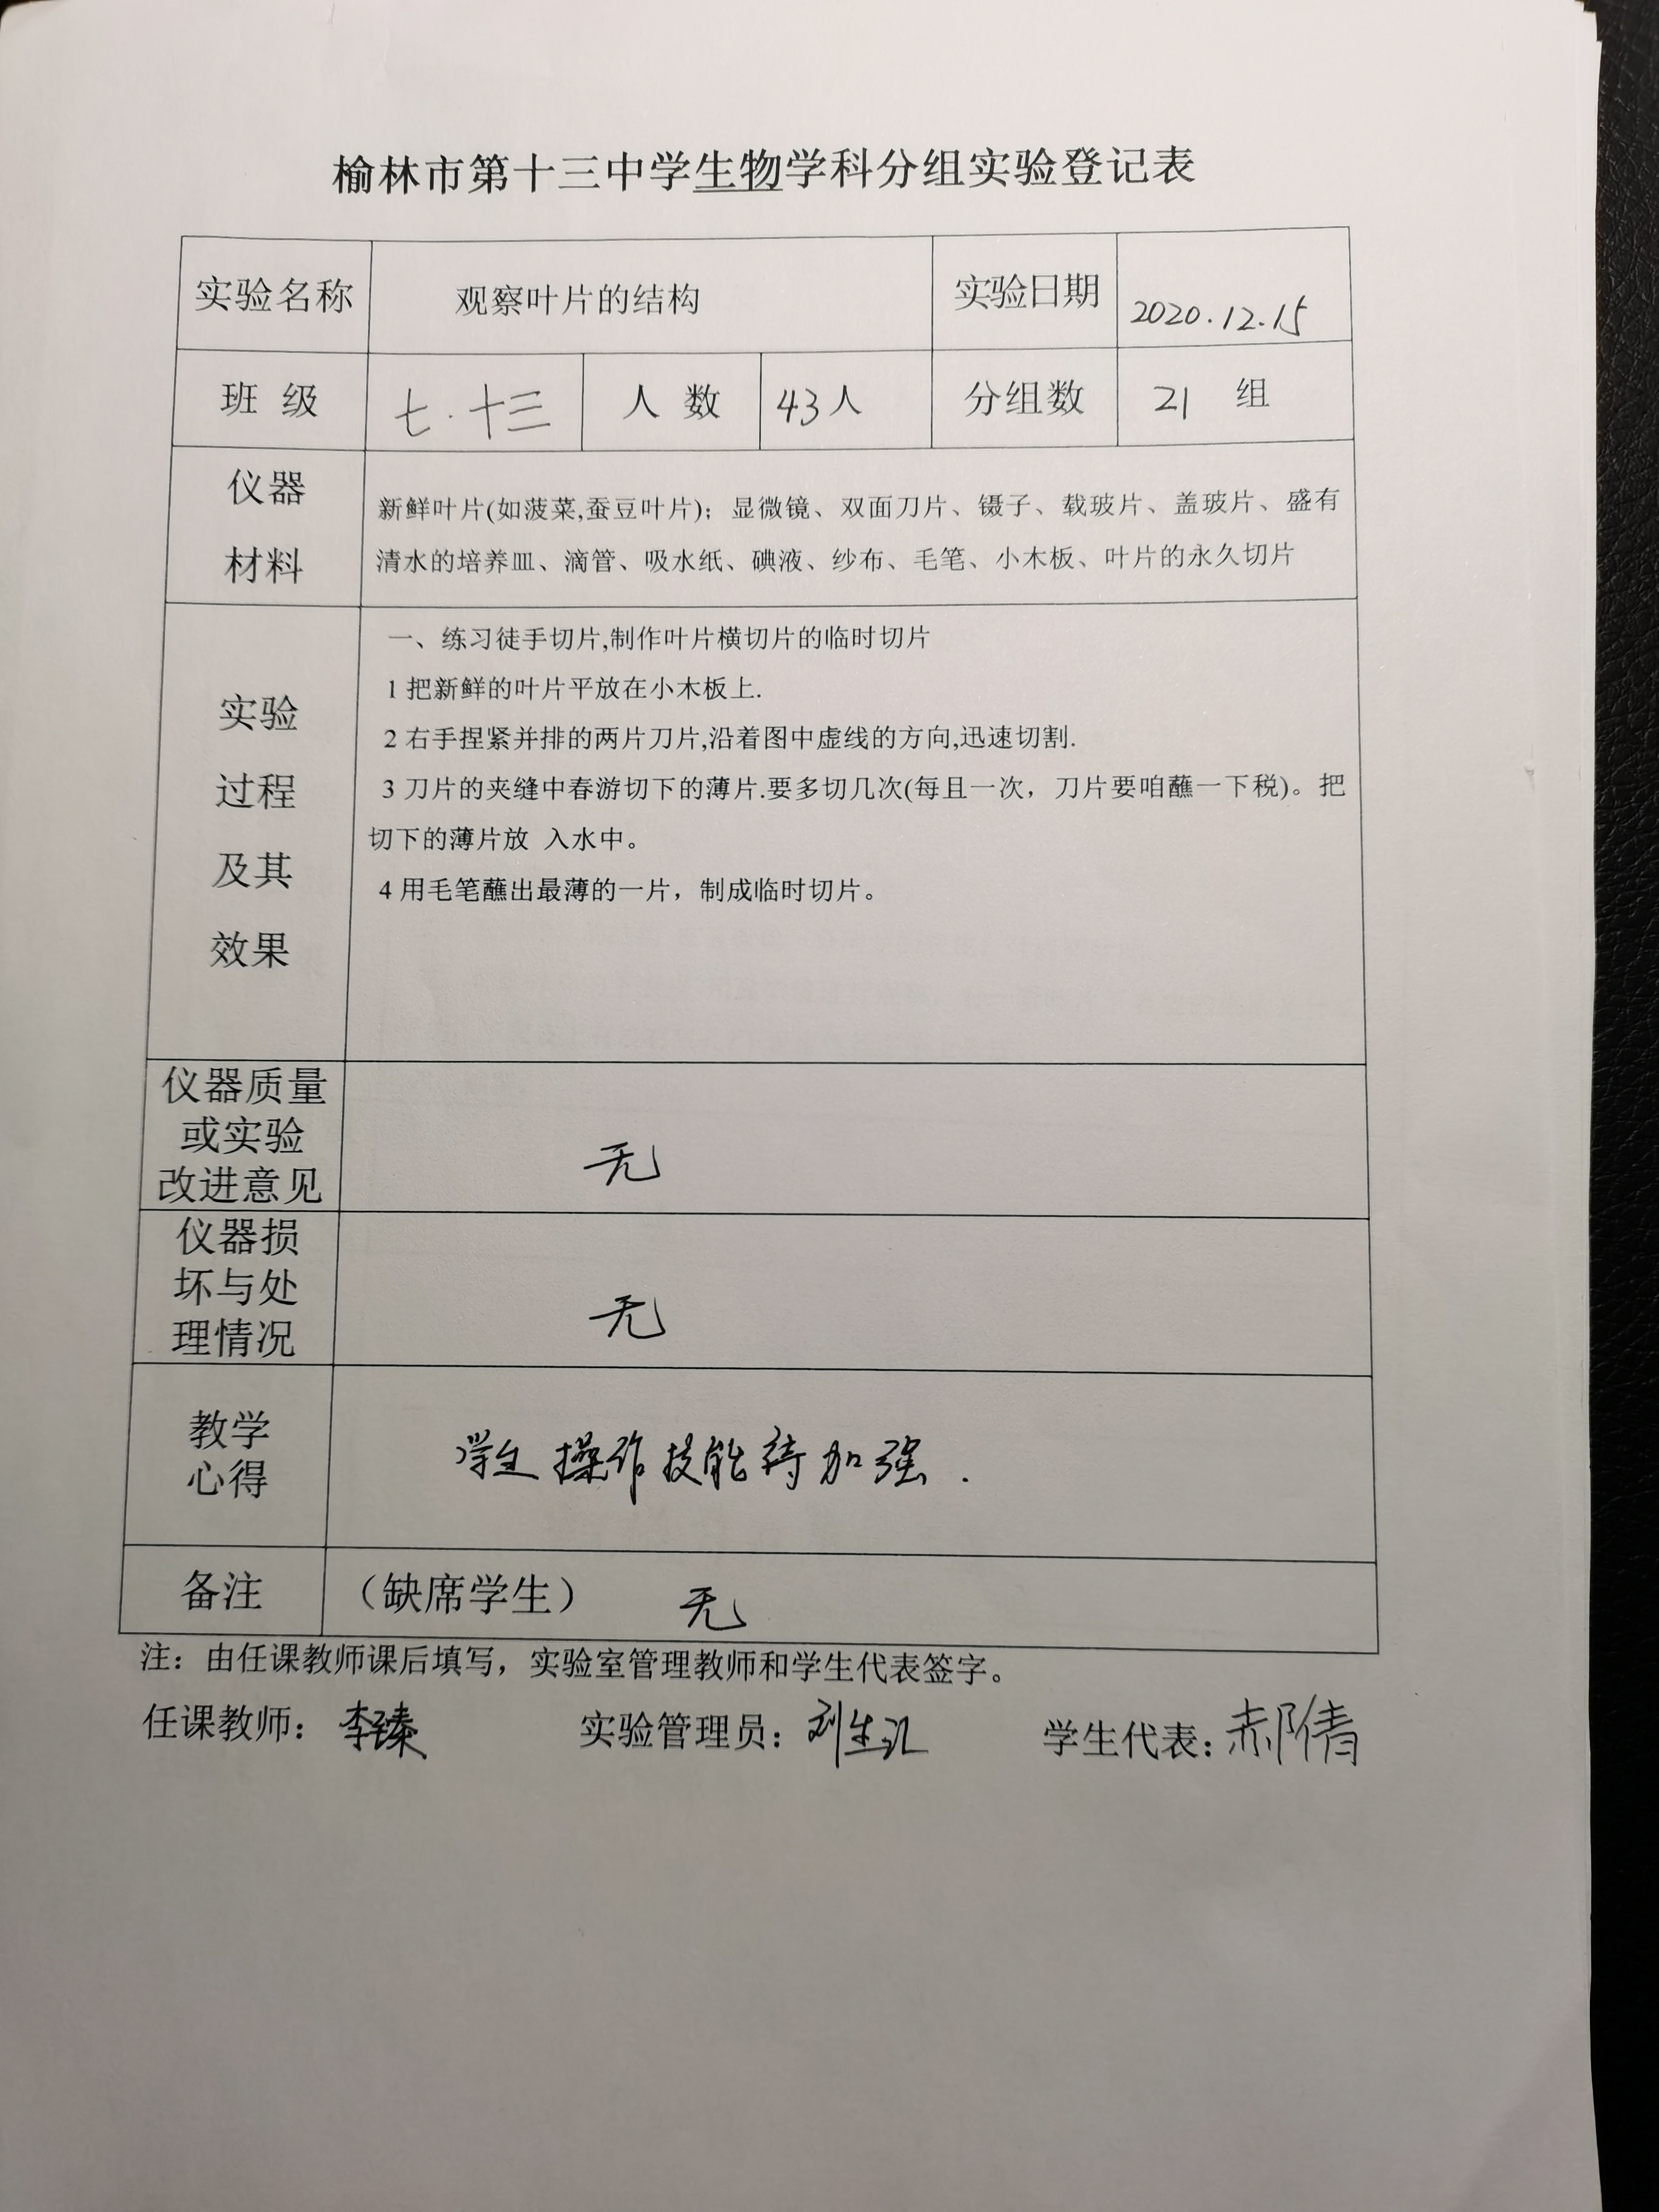 榆林市第十三中学生物学科分组实验登记表
实验名称 观察叶片的结构 实验日期 2020.12.15
班 级 七.十三 人 数 43人 分组数 21 组
仪器
材料
新鲜叶片(如菠菜,蚕豆叶片)；显微镜、双面刀片、镊子、载玻片、盖玻片、盛有
清水的培养皿、滴管、吸水纸、碘液、纱布、毛笔、小木板、叶片的永久切片
实验
过程
及其
效果
一、练习徒手切片,制作叶片横切片的临时切片
1 把新鲜的叶片平放在小木板上.
2 右手捏紧并排的两片刀片,沿着图中虚线的方向,迅速切割.
3 刀片的夹缝中春游切下的薄片.要多切几次(每且一次，刀片要咱蘸一下税)。把
切下的薄片放 入水中。
4 用毛笔蘸出最薄的一片，制成临时切片。
仪器质量
或实验
改进意见
无
仪器损
坏与处
理情况
无
教学
心得
学生操作技能待加强.
备注 （缺席学生） 无
注：由任课教师课后填写，实验室管理教师和学生代表签字。
任课教师：李臻 实验管理员：刘生汇 学生代表：郝倩